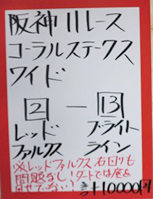 阪神11レース
コーラルステークス
ワイド
2 - 13
レッド ブライト
ファルクス ライン
※レッドファルクス右回りも
問題なし!ダートでは底を
見せていない! 計10000円